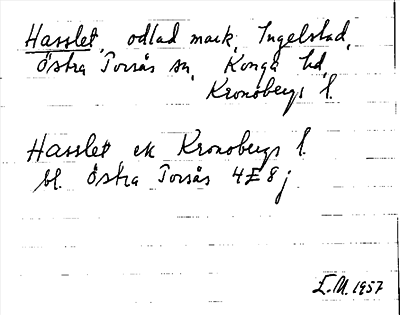 Hasslet, odlad mark, Ingelstad,
Östra Torsås sn, Konga hd,
Kronobergs l.
Hasslet, ek Kronobergs l.
bl. Östra Torsås 4E8j
E.M. 1957